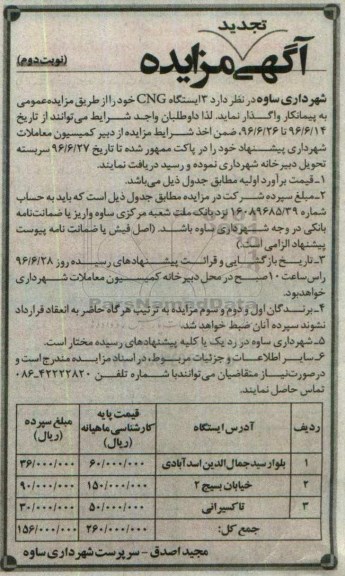 تجدید
آگهی مزایده
(نوبت دوم)
شهرداری ساوه در نظر دارد ۳ ایستگاه CNG خود را از طریق مزایده عمومی
به پیمانکار واگذار نماید. لذا داوطلبان واجد شرایط می‌توانند از تاریخ
۹۶/۶/۱۴ تا ۹۶/۶/۲۶، ضمن اخذ شرایط مزایده از دبیر کمیسیون معاملات
شهرداری پیشنهاد خود را در پاکت ممهور شده تا تاریخ ۹۶/۶/۲۷ سربسته
تحویل دبیرخانه شهرداری نموده و رسید دریافت نمایند.
۱- قیمت برآورد اولیه مطابق جدول ذیل می‌باشد.
۲- مبلغ سپرده شرکت در مزایده مطابق جدول ذیل است که باید به حساب
شماره ۱۶۰۸۹۶۸۵/۳۹ نزد بانک ملت شعبه مرکزی ساوه واریز یا ضمانت‌نامه
بانکی در وجه شهرداری ساوه باشد. (اصل فیش یا ضمانت نامه پیوست
پیشنهاد الزامی است.)
۳- تاریخ بازگشایی و قرائت پیشنهادهای رسیده روز ۹۶/۶/۲۸
راس ساعت ۱۰ صبح در محل دبیرخانه کمیسیون معاملات شهرداری
خواهد بود.
ParsNamadData
۴- برندگان اول و دوم و سوم مزایده به ترتیب هرگاه حاضر به انعقاد قرارداد
نشوند سپرده آنان ضبط خواهد شد.
۵- شهرداری ساوه در رد یک یا کلیه پیشنهادهای رسیده مختار است.
۶- سایر اطلاعات و جزئیات مربوط، در اسناد مزایده مندرج است و
در صورت نیاز متقاضیان می‌توانند با شماره تلفن ۴۲۲۲۲۸۲۰-۰۸۶
تماس حاصل نمایند.
ردیف آدرس ایستگاه قیمت پایه کارشناسی ماهیانه (ریال) مبلغ سپرده (ریال)
۱ بلوار سید جمال الدین اسدآبادی ۶۰/۰۰۰/۰۰۰ ۳۶/۰۰۰/۰۰۰
۲ خیابان بسیج ۲ ۱۵۰/۰۰۰/۰۰۰ ۹۰/۰۰۰/۰۰۰
۳ تاکسیرانی ۵۰/۰۰۰/۰۰۰ ۳۰/۰۰۰/۰۰۰
جمع کل: ۲۶۰/۰۰۰/۰۰۰ ۱۵۶/۰۰۰/۰۰۰
مجید اصدق - سرپرست شهرداری ساوه